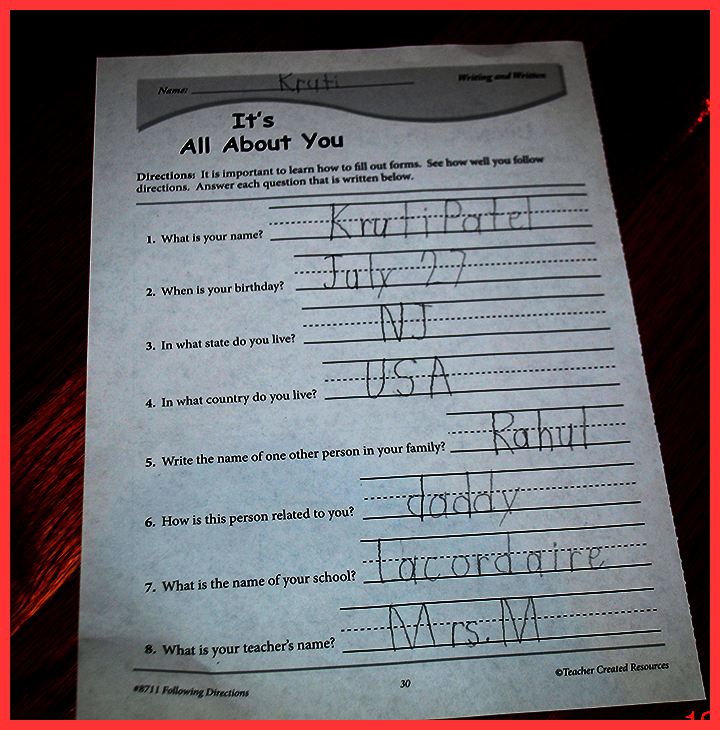 Name: Kruti
Writing and Written
It's
All About You
Directions: It is important to learn how to fill out forms. See how well you follow
directions. Answer each question that is written below.
1. What is your name? Kruti Patel
2. When is your birthday? July 27
3. In what state do you live? NJ
4. In what country do you live? USA
5. Write the name of one other person in your family? Rahul
6. How is this person related to you? daddy
7. What is the name of your school? Lacordaire
8. What is your teacher's name? Mrs. M
#8711 Following Directions
30
©Teacher Created Resources